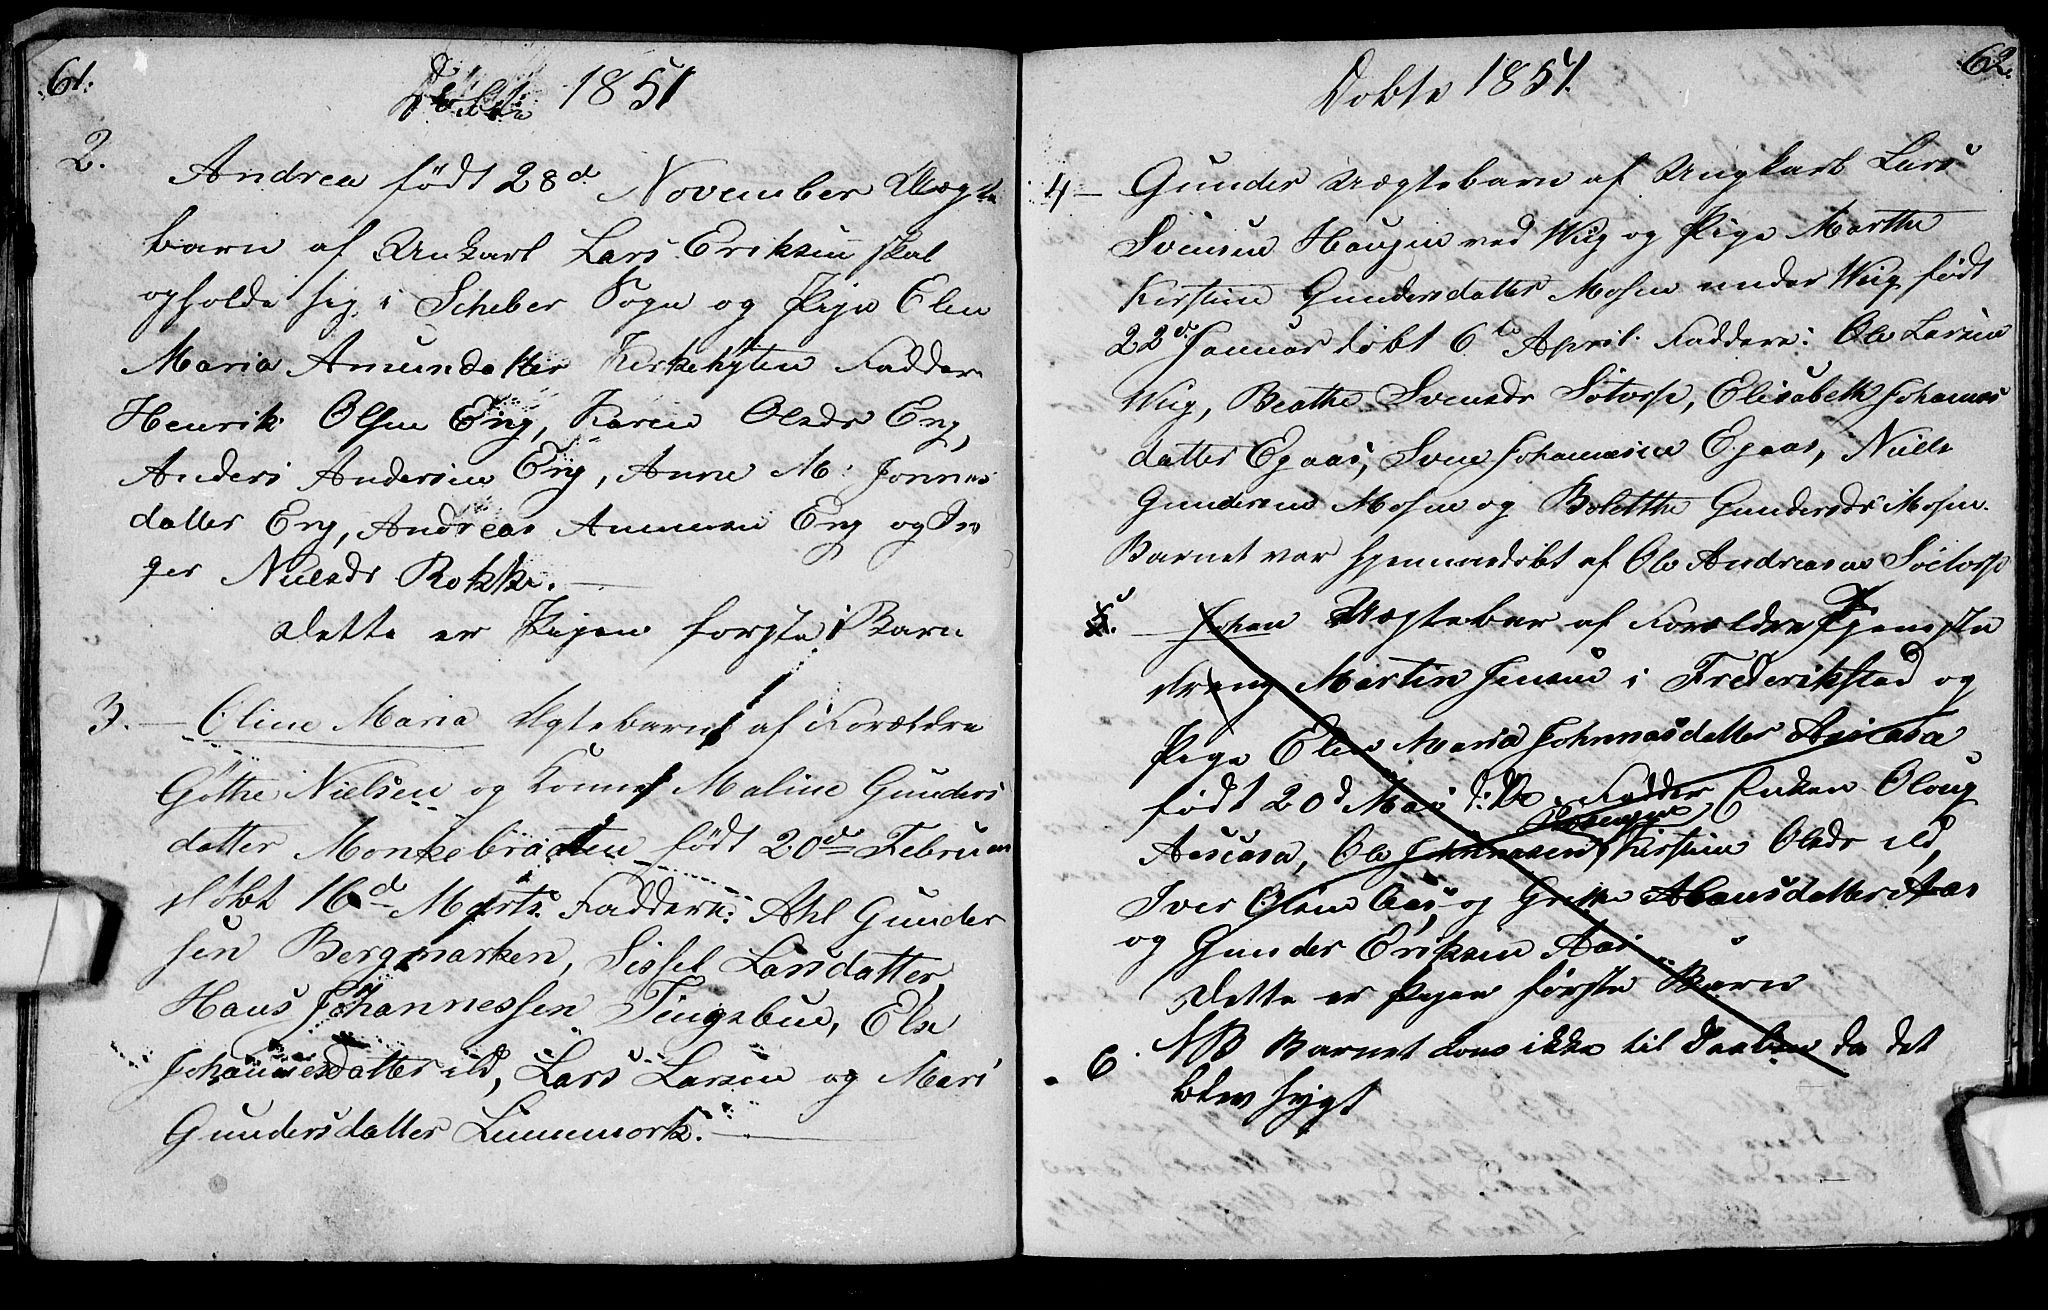 61.
Döbte 1851
2.
Andrea født 28d November Uægte
barn af Unkarl Lars Eriksen skal
opholde sig i Scheber Sogn og Pige Elen
Maria Amundatter Kirkehyten Faddere
Henrik Olsen Eng, Karen Olsdr Eng,
Anders Andersen Eng, Anne M: Jonnes
datter Eng, Andreas Amunsen Eng og In
ger Nielsdr Rokke.
dette er Pigen forste Barn
3. Oline Maria Ægtebarn af Forældre
Göthe Nielsen og Konne Maline Gunders
datter Monkebraaten født 20de Februar
döbt 16d Marts. Faddere: Axl Gunder
sen Bergmarken, Sissel Larsdatter,
Hans Johannessen Tingsbue, Else
Johannesdatter ild, Lars Larsen og Mari
Gundersdatter Linnemork.
62.
Dobte 1851.
4 Gunder Uægtebarn af Ungkarl Lars
Svensen Haugen ved Wiig og Pige Marthe
Kirstine Gundersdatter Mosen under Wiig født
22d Januar döbt 6te April. Faddere: Ole Larsen
Wiig, Beathe Svensdr Sötorp, Elisabeth Johannes
datter Egaas, Sven Johannesen Egaas, Niels
Gundersen Mosen og Bolette Gundersdr Mosen.
Barnet var hjemmedöbt af Ole Andreasen Söetorp
5. Johan Uægtebar af Forældre Tjeneste
dreng Martin Jensen i Frederikstad og
Pige Elen Maria Johnnasdatter
født 20d Mai Fadder Enken Oloug
Ole Johnnasen, Kirstine Olsdr ild,
Iver Olsen Aas, og Grethe Hansdatter Aas
og Gunder Eriksen Aas.
dette er Pigen förste Barn
6. NB Barnet kom ikke til Daaben da det
blev sygt